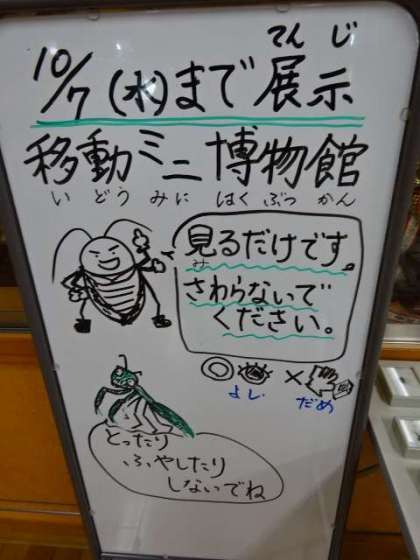 てんじ
10/7(水)まで展示
移動ミニ博物館
いどうみに はくぶつかん
見るだけです。
み
さわらないで
ください。
◎ ×
よし だめ
とったり
ふやしたり
しないでね